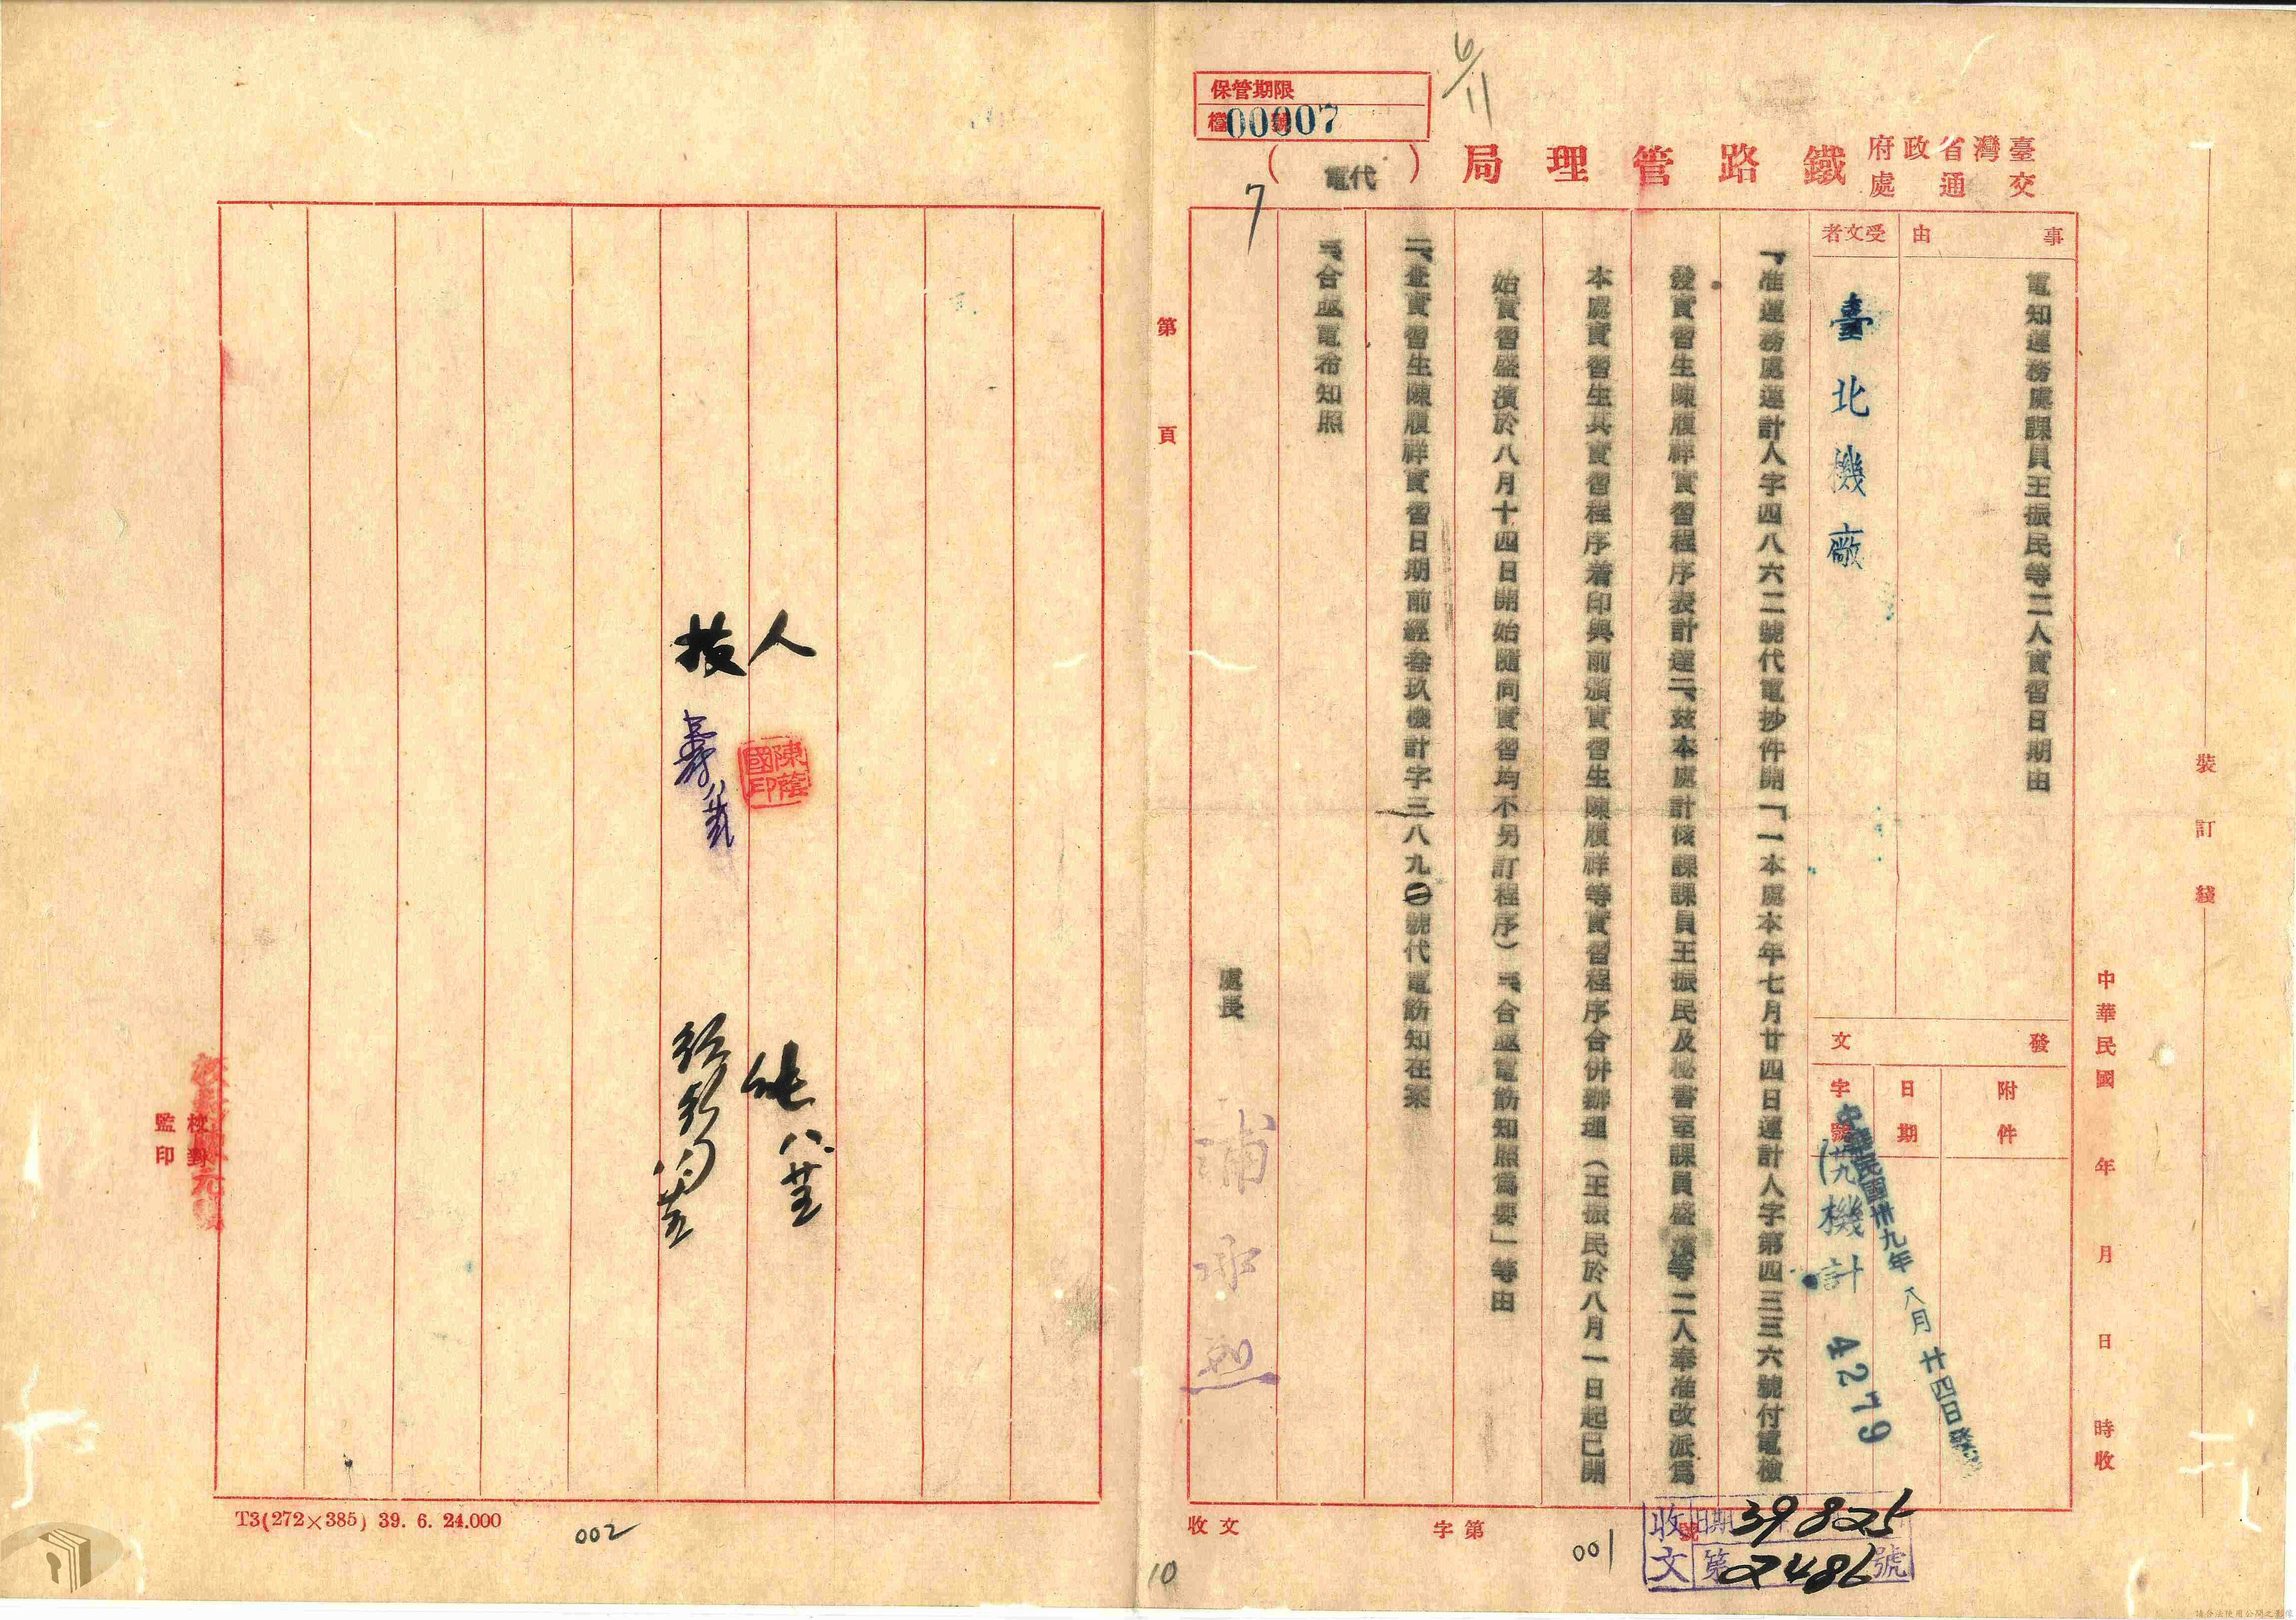 保管期限
檔號
00007
6/11
臺灣省政府
交通處
鐵路管理局
(代電)
7
事由
電知運務處課員王振民等二人實習日期由
受文者
臺北機廠
發文
附件
日期
字號
中華民國卅九年八月廿四日發
(卅九)機計
4279
一、准運務處運計人字四八六二號代電抄件開「一本處本年七月廿四日運計人字第四三三六號付電檢
發實習生陳履祥實習程序表計達二、玆本處計核課課員王振民及秘書室課員盛澒等二人奉准改派爲
本處實習生其實習程序着印與前頒實習生陳履祥等實習程序合併辦理(王振民於八月一日起已開
始實習盛澒於八月十四日開始隨同實習均不另訂程序)三、合亟電飭知照爲要」等由
二、查實習生陳履祥實習日期前經叁玖機計字三八九〇號代電飭知在案
三、合亟電布知照
處長
中華民國 年 月 日 時收
裝訂綫
收文 字第 號
001
收文
日期
39825
第2486號
10
第 頁
人
技
陳蔭國印
八
監印
校對
T3(272×385) 39. 6. 24.000
002